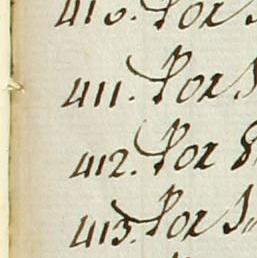 410. Por
411. Por
412. Por
413. Por